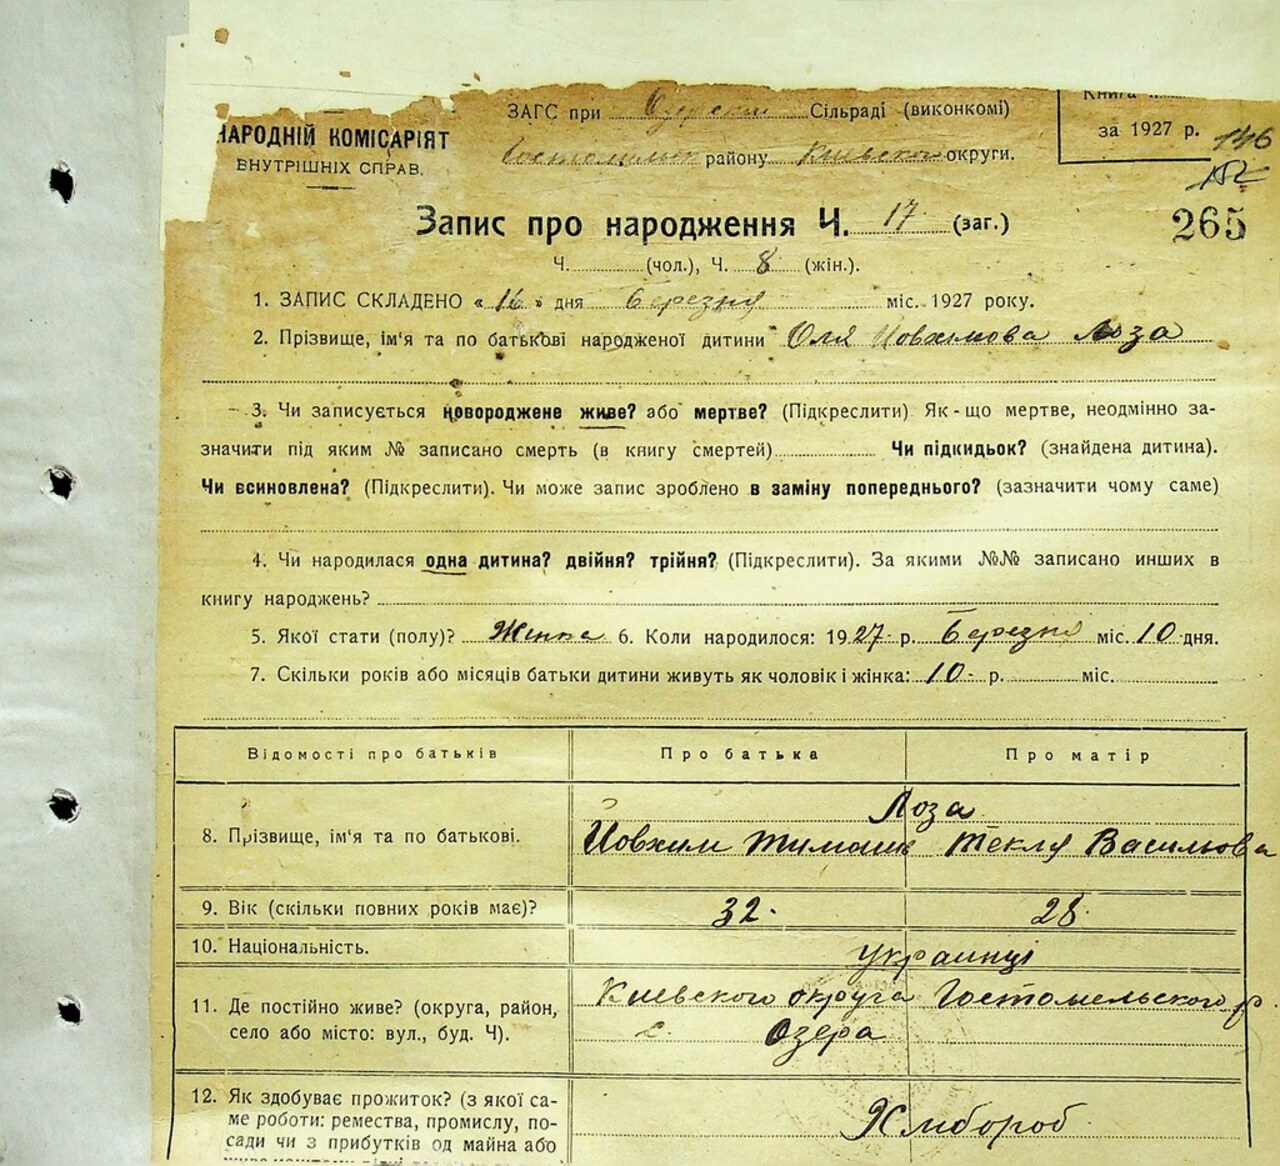 ЗАГС при Озерскій Сільраді (виконкомі)
Книга
НАРОДНІЙ КОМІСАРІЯТ
за 1927 р.
146
ВНУТРІШНІХ СПРАВ.
району Київского округи.
152
Запис про народження Ч. 17 (заг.)
265
Ч. (чол.), Ч. 8 (жін.).
1. ЗАПИС СКЛАДЕНО « 16 » дня Березня міс. 1927 року.
2. Прізвище, ім'я та по батькові народженої дитини Оля Йовхимова Лоза
3. Чи записується новороджене живе? або мертве? (Підкреслити) Як-що мертве, неодмінно за-
значити під яким № записано смерть (в книгу смертей) Чи підкидьок? (знайдена дитина).
Чи всиновлена? (Підкреслити). Чи може запис зроблено в заміну попереднього? (зазначити чому саме)
4. Чи народилася одна дитина? двійня? трійня? (Підкреслити). За якими №№ записано инших в
книгу народжень?
5. Якої стати (полу)? Жінка 6. Коли народилось: 1927 р. Березня міс. 10 дня.
7. Скільки років або місяців батьки дитини живуть як чоловік і жінка: 10 р. міс.
Відомості про батьків Про батька Про матір
Лоза
8. Прізвище, ім'я та по батькові. Йовхим Тимошів Текля Васильова
9. Вік (скільки повних років має)? 32. 28.
10. Національність. Украинці
11. Де постійно живе? (округа, район, Киевского округа Гостомельского р.
село або місто: вул., буд. Ч). с. Озера
12. Як здобуває прожиток? (з якої са-
ме роботи: ремества, промислу, по- Хлібороб
сади чи з прибутків од майна або